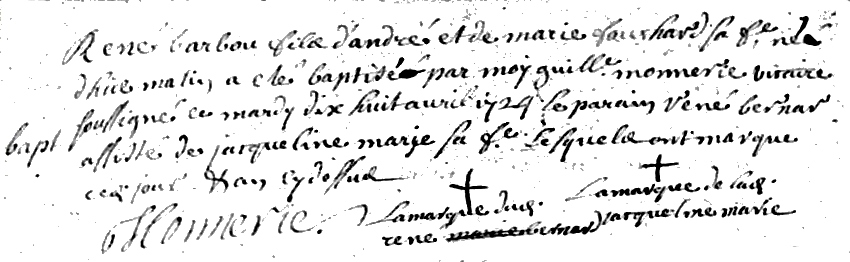 René barbou fils d'andré et de marie fouchard sa fe né
d'hier matin a eté baptisé par moy guille monnerie vicaire
soussigné ce mardy dix huit avril 1724 le parain rené bernar
bapt assisté de jacqueline marie sa fe lesquels ont marque
ces jour & an cy dessus
Lamarque dud. Lamarque de lad.
Monnerie. rené bernard jacqueline marie